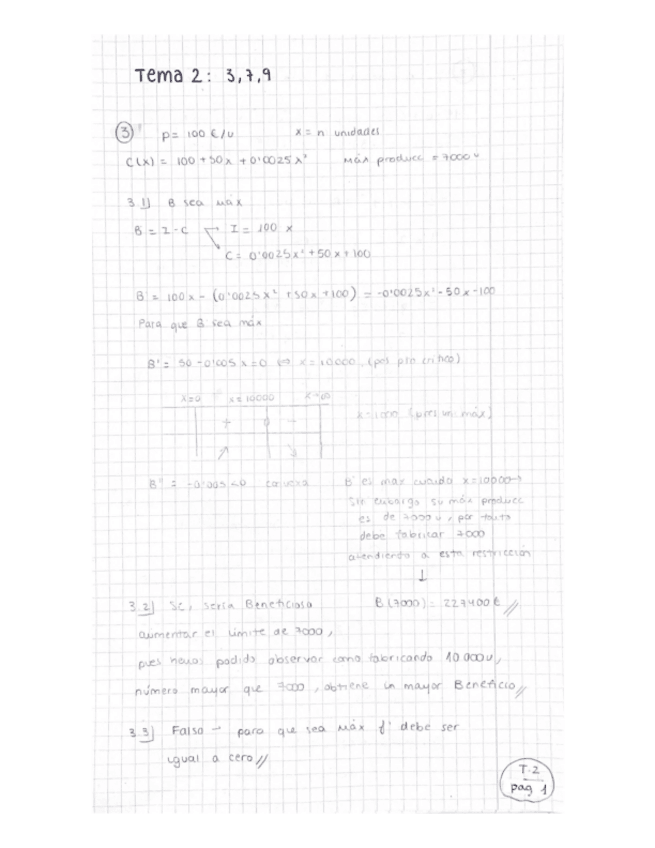 Tema 2: 3,7,9
3 p= 100 €/u x = n unidades
C(x) = 100 + 50x + 0'0025x² Máx producc = 7000 u
3.1] B sea máx
B = I - C I = 100 x
C = 0'0025x² + 50x + 100
B = 100x - (0'0025x² + 50x + 100) = -0'0025x² - 50x - 100
Para que B sea máx
B' = 50 - 0'005x = 0 ⇔ x = 10000 (pos pto crítico)
x=0 x=10000 x→∞
+ 0 -
B'' = -0'005 <0
B es max cuando x=10000
Sin embargo su máx producc
es de 7000 u, por tanto
debe fabricar 7000
atendiendo a esta restricción
↓
3.2] Sí, sería Beneficiosa B(7000) = 227400 €//
aumentar el límite de 7000,
pues hemos podido observar como fabricando 10 000u,
número mayor que 7000, obtiene un mayor Beneficio//
3.3] Falso → para que sea máx f' debe ser
igual a cero//
T.2
pag 1